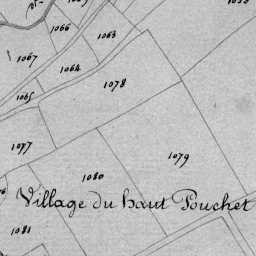 1066
1063
1067
1064
1078
1065
1077
1079
1080
Village du haut Pouchet
1081